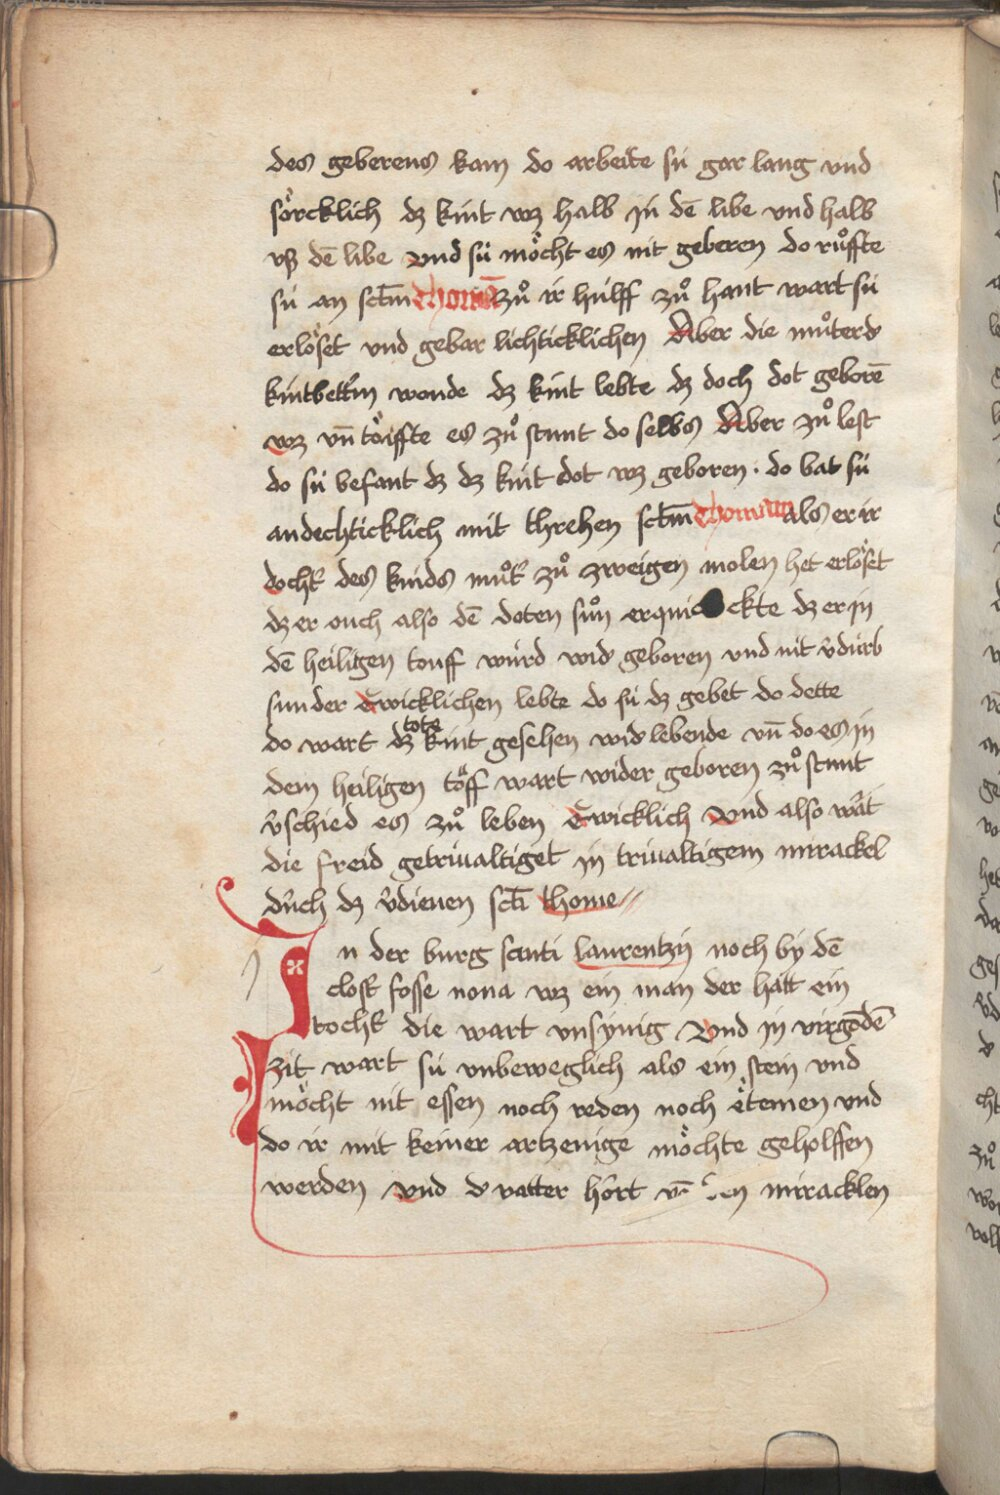 des geberens kam do arbeite sú gar lang und
sörcklich dz kint wz halb in dē libe und halb
uß dē libe und sú möcht es nit geberen do růffte
sú an sctm̄ thomā zů ir hülff zů hant wart sú
erlöset und gebar lichticklichen Aber die můter d'
kintbettin wonde dz kint lebte dz doch dot geborē
wz un̄ töiffte es zů stunt do selbs Aber zů lest
do sú befant dz dz kint dot wz geboren · do bat sú
andechticklich mit threhen sctm̄ thomam als er ir
docht' des kinds můt' zů zweigen molen het erlöset
dz er ouch also dē doten sůn erquickte dz er in
dē heiligen touff würd wid' geboren und nit v'dürb
sunder ewicklichen lebte do sú dz gebet do dette
do wart dz tote kint gesehen wid' lebende un̄ do es in
dem heiligen töff wart wider geboren zů stunt
v'schied es zů leben ewicklich und also wa't
die freid getriualtiget in triualtigem mirackel
du'ch dz v'dienen scti thome
In der burg scanti laurentzÿ noch bÿ dē
clost' fosse nona wz ein man der hatt ein
tocht' die wart unsÿnig und in virgēdē
zit wart sú unbeweglich als ein stein und
möcht nit essen noch reden noch etemen und
do ir mit keiner artzenige möchte geholffen
werden und d' vatter hort vō den miracklen